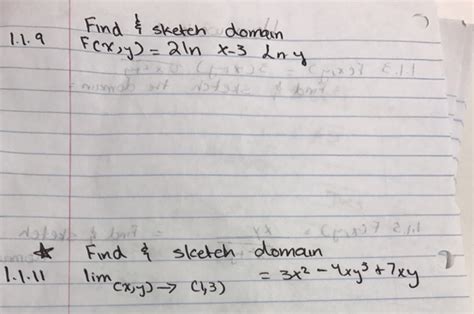 Find & sketch domain
1.1.9 F(x,y) = 2ln x-3 ln y
Find & sketch domain
1.1.11 lim (x,y) → (1,3) = 3x² - 4xy³ + 7xy